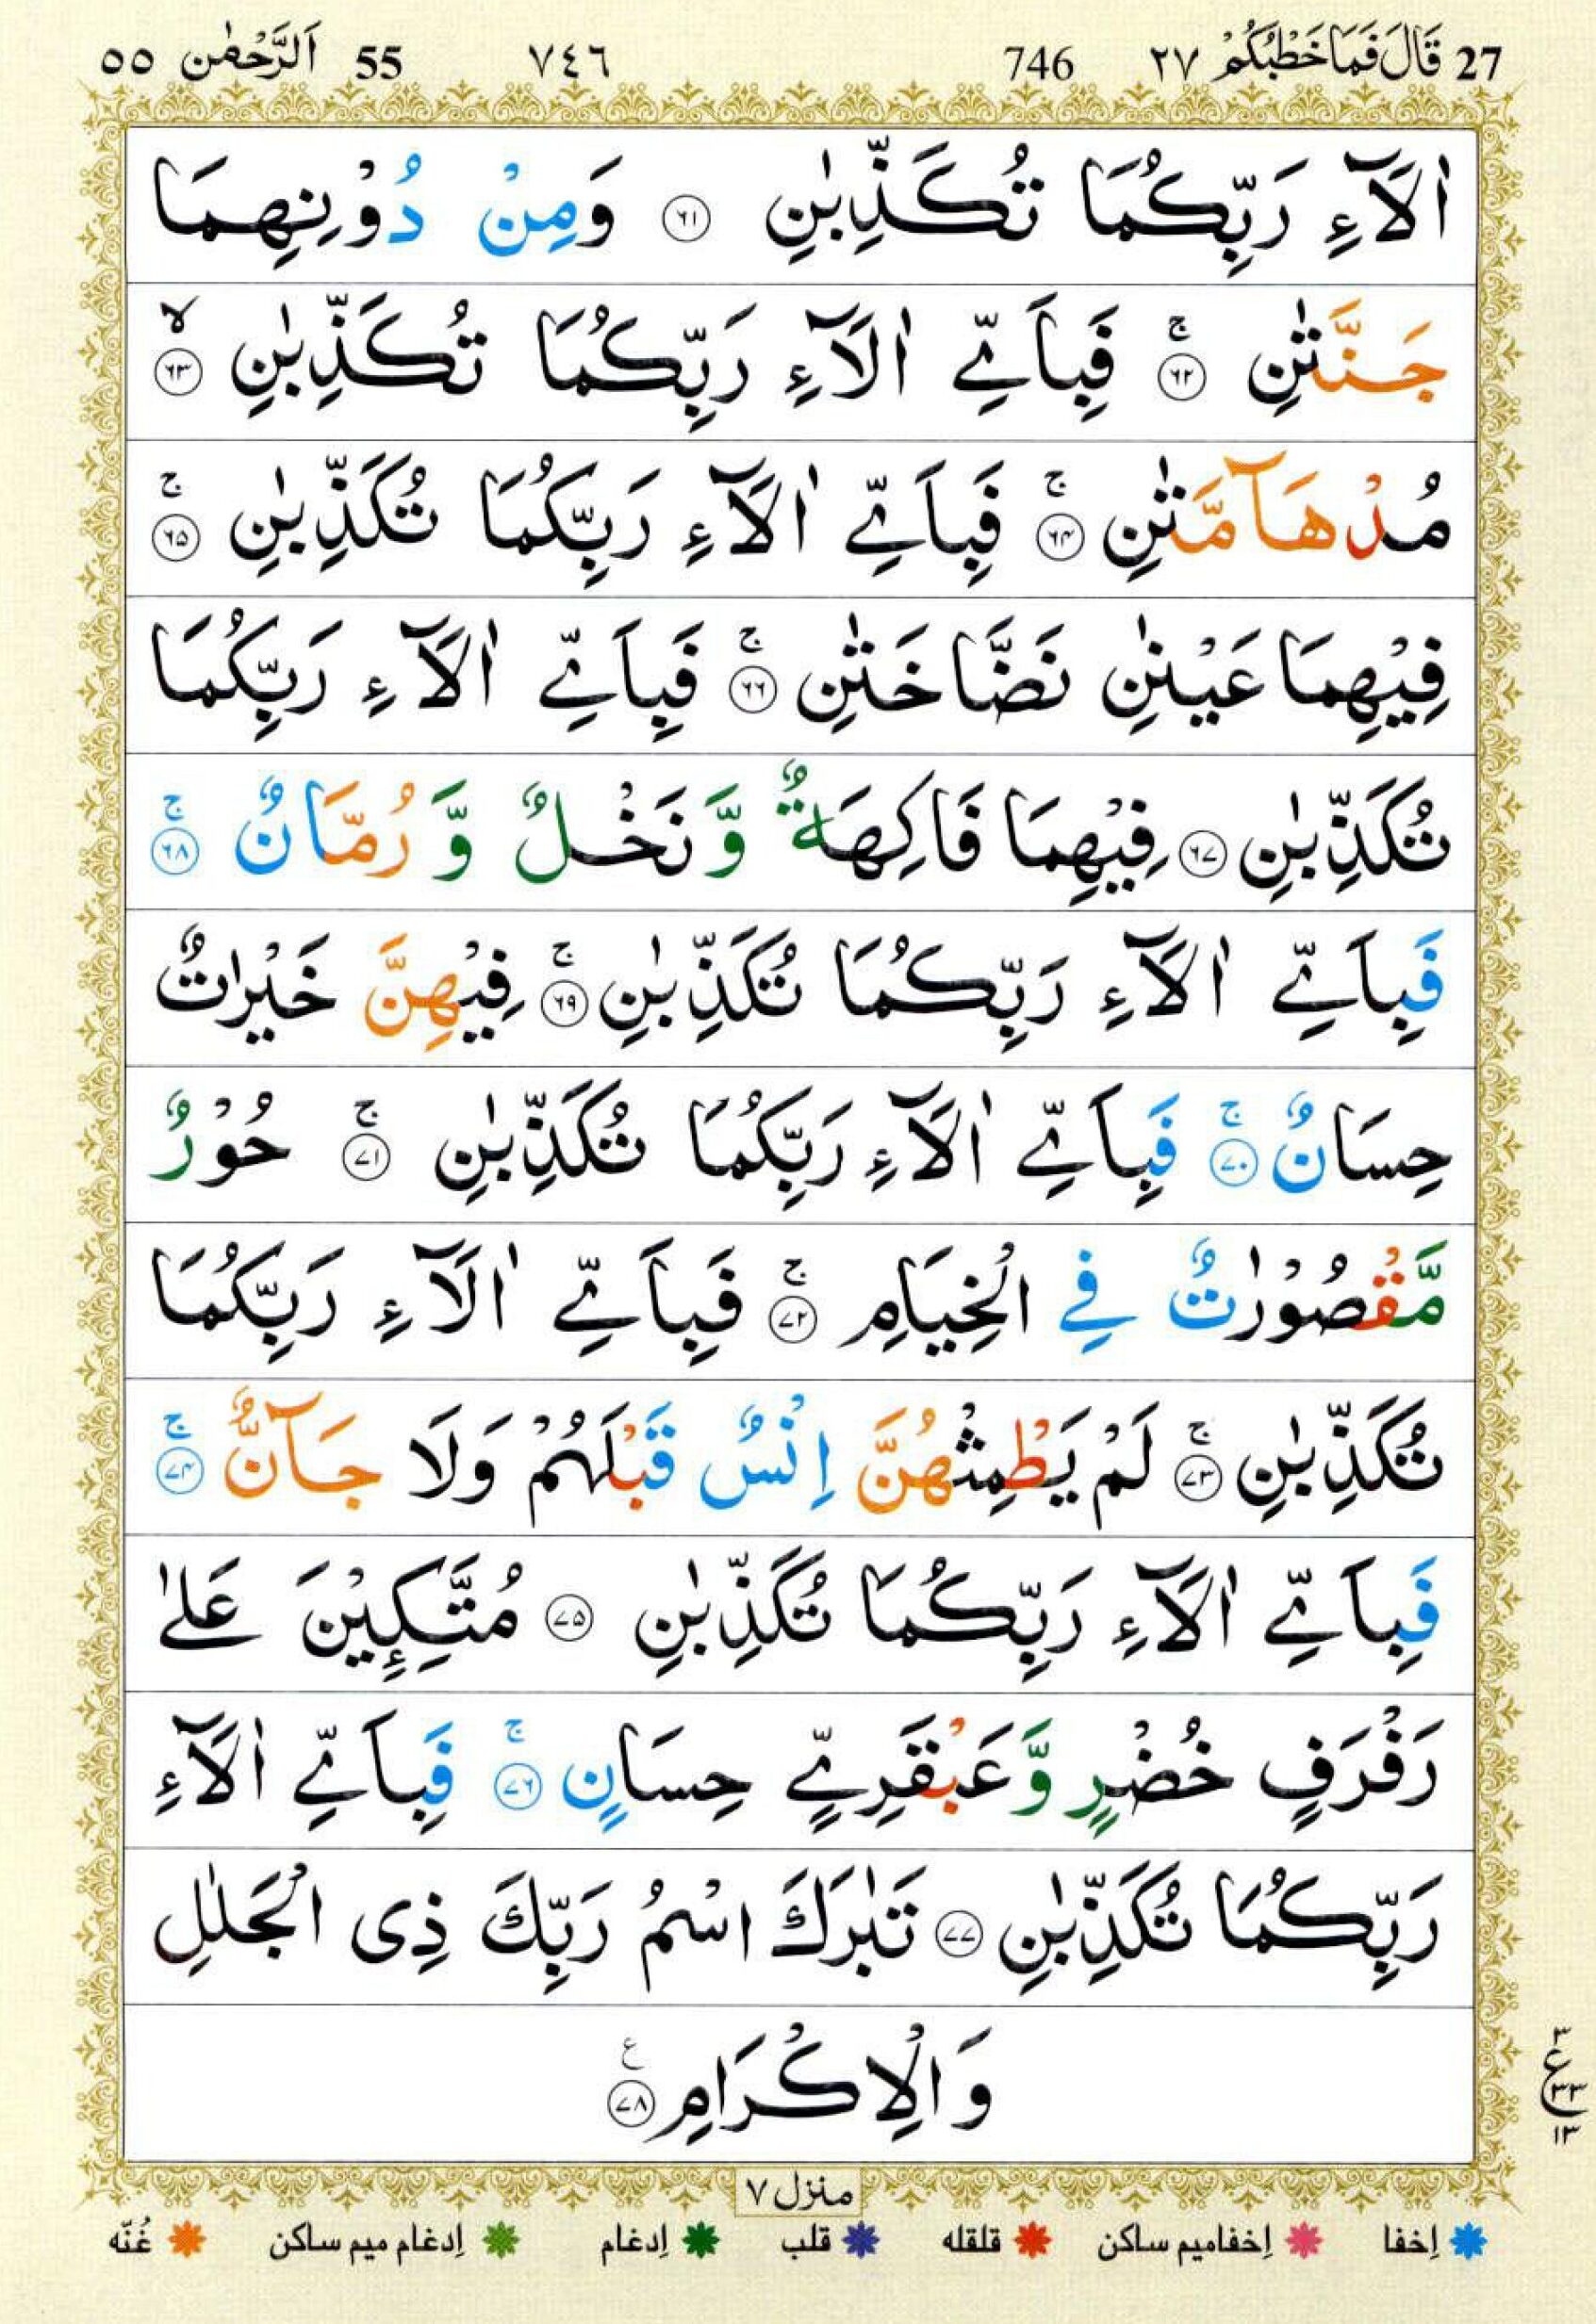 27 قَالَ فَمَا خَطْبُكُمْ ٢٧ 746 ٧٤٦ 55 اَلرَّحْمٰن ٥٥
اٰلَآءِ رَبِّكُمَا تُكَذِّبٰنِ ۝٦١ وَمِنْ دُوْنِهِمَا
جَنَّتٰنِ ۝٦٢ۚ فَبِاَيِّ اٰلَآءِ رَبِّكُمَا تُكَذِّبٰنِ ۝٦٣ۙ
مُدْهَآمَّتٰنِ ۝٦٤ۚ فَبِاَيِّ اٰلَآءِ رَبِّكُمَا تُكَذِّبٰنِ ۝٦٥ۚ
فِيْهِمَا عَيْنٰنِ نَضَّاخَتٰنِ ۝٦٦ۚ فَبِاَيِّ اٰلَآءِ رَبِّكُمَا
تُكَذِّبٰنِ ۝٦٧ فِيْهِمَا فَاكِهَةٌ وَّنَخْلٌ وَّرُمَّانٌ ۝٦٨ۚ
فَبِاَيِّ اٰلَآءِ رَبِّكُمَا تُكَذِّبٰنِ ۝٦٩ۚ فِيْهِنَّ خَيْرٰتٌ
حِسَانٌ ۝٧٠ۚ فَبِاَيِّ اٰلَآءِ رَبِّكُمَا تُكَذِّبٰنِ ۝٧١ۚ حُوْرٌ
مَّقْصُوْرٰتٌ فِي الْخِيَامِ ۝٧٢ۚ فَبِاَيِّ اٰلَآءِ رَبِّكُمَا
تُكَذِّبٰنِ ۝٧٣ۚ لَمْ يَطْمِثْهُنَّ اِنْسٌ قَبْلَهُمْ وَلَا جَآنٌّ ۝٧٤ۚ
فَبِاَيِّ اٰلَآءِ رَبِّكُمَا تُكَذِّبٰنِ ۝٧٥ مُتَّكِـِٕيْنَ عَلٰى
رَفْرَفٍ خُضْرٍ وَّعَبْقَرِيٍّ حِسَانٍ ۝٧٦ۚ فَبِاَيِّ اٰلَآءِ
رَبِّكُمَا تُكَذِّبٰنِ ۝٧٧ تَبٰرَكَ اسْمُ رَبِّكَ ذِى الْجَلٰلِ
وَالْاِكْرَامِ ۝٧٨ ع
٣ ع ٣٣ ١٣
منزل ٧
اِخفا اِخفامیم ساکن قلقله قلب اِدغام اِدغام میم ساکن غُنّه